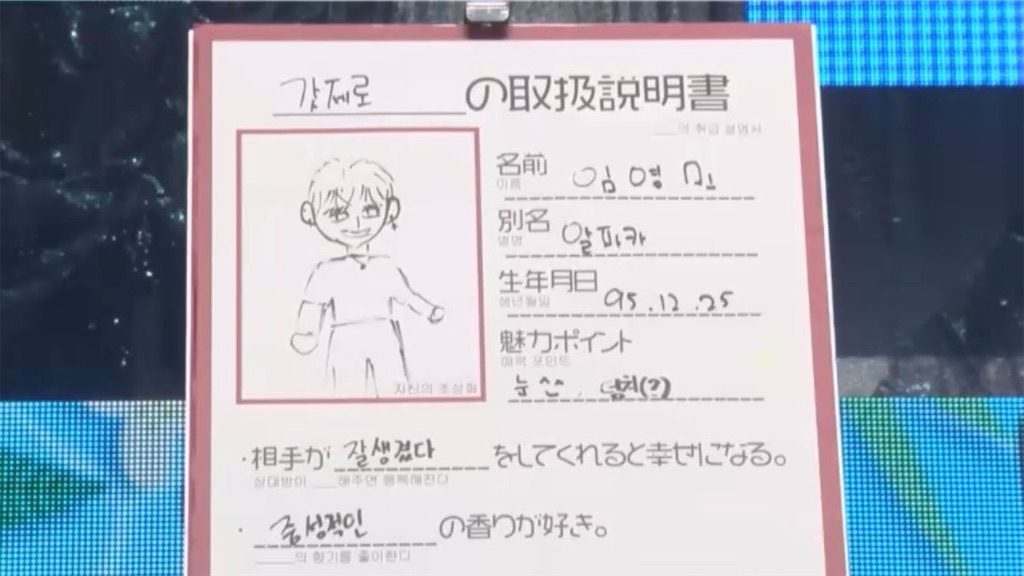 갓제로 の取扱説明書
___의 취급 설명서
名前 임영민
이름
別名 알파카
별명
生年月日 95.12.25
생년월일
魅力ポイント
매력 포인트
눈
자신의 초상화
・相手が 잘생겼다 をしてくれると幸せになる。
상대방이 ___해주면 행복해진다
・중성적인 の香りが好き。
___의 향기를 좋아한다